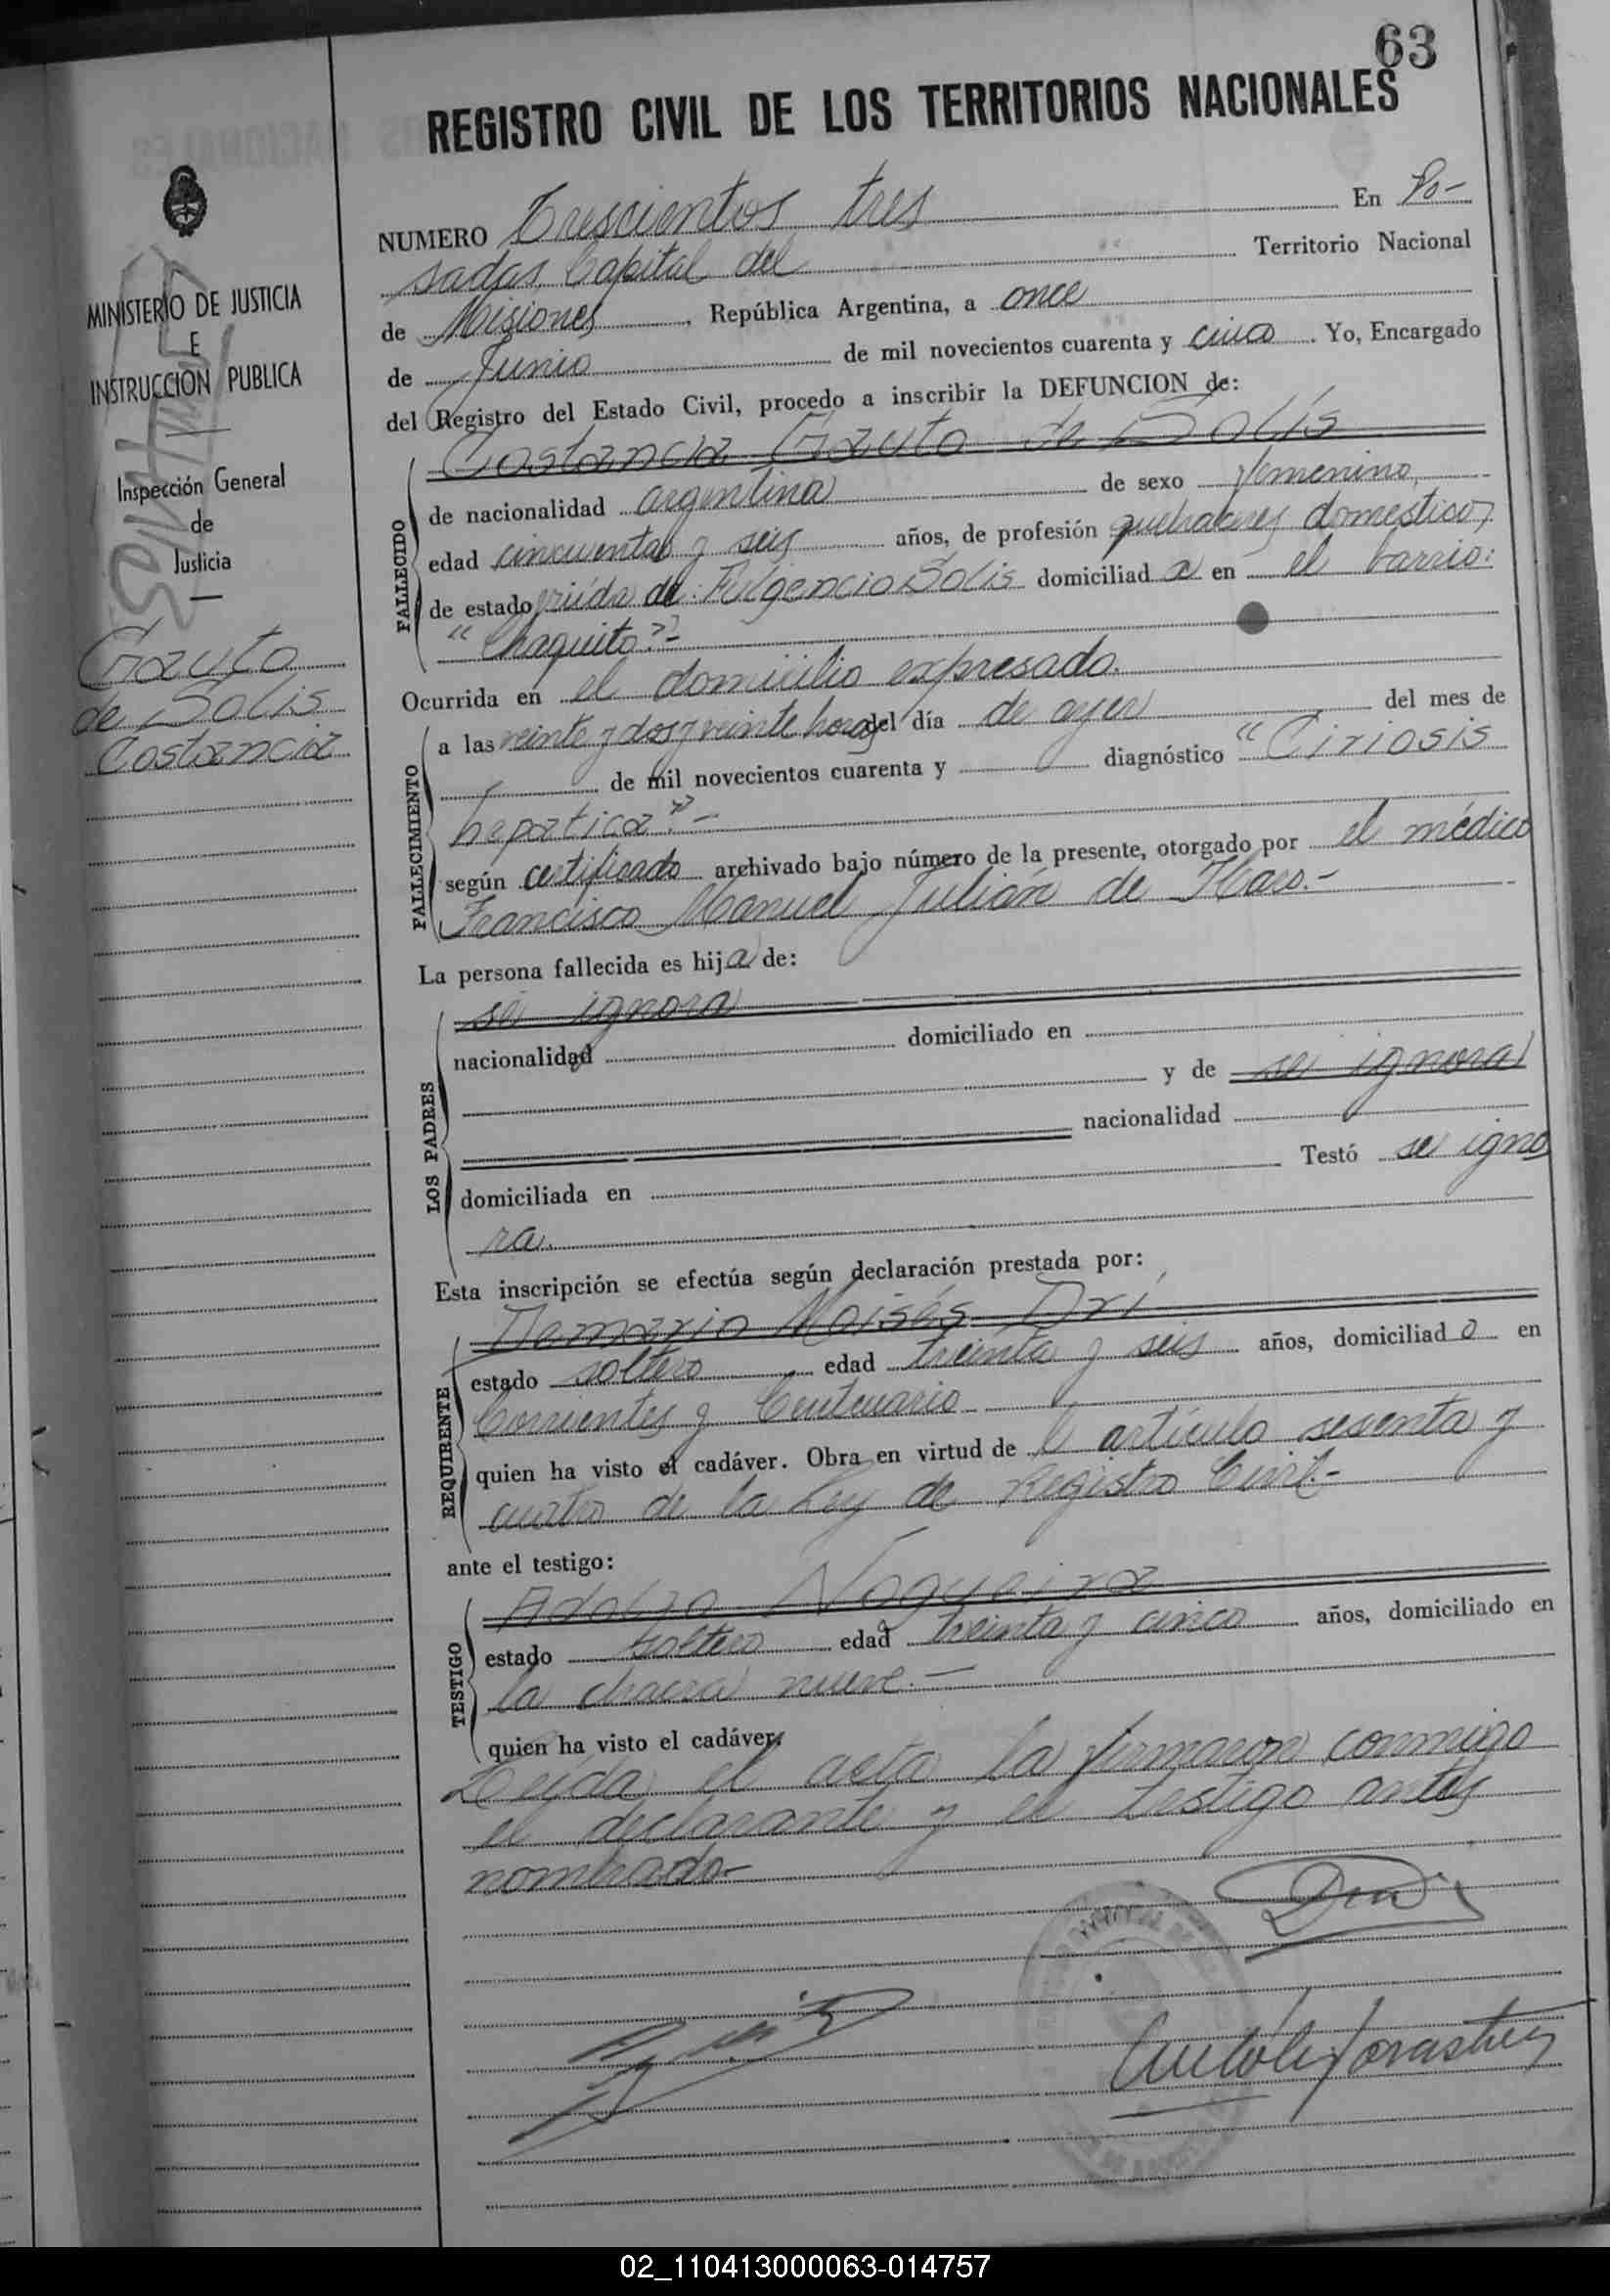 63
REGISTRO CIVIL DE LOS TERRITORIOS NACIONALES
MINISTERIO DE JUSTICIA
E
INSTRUCCION PUBLICA
Inspección General
de
Justicia
Gauto
de Solis
Costancia
NUMERO Trescientos tres En Po-
sadas, Capital del Territorio Nacional
de Misiones, República Argentina, a once
de Junio de mil novecientos cuarenta y cinco. Yo, Encargado
del Registro del Estado Civil, procedo a inscribir la DEFUNCION de:
Costancia Gauto de Solís
FALLECIDO
de nacionalidad argentina de sexo femenino,
edad cincuenta y seis años, de profesión quehaceres domesticos,
de estado viúda de Fulgencio Solis domiciliad a en el barrio:
"Chaquito".-
Ocurrida en el domicilio expresado.
FALLECIMIENTO
a las veinte y dos y veinte horas del día de ayer del mes de
de mil novecientos cuarenta y diagnóstico "Ciriosis
hepatica".-
según certificado archivado bajo número de la presente, otorgado por el médico
Francisco Manuel Julián de Haro.-
La persona fallecida es hija de:
LOS PADRES
se ignora
nacionalidad domiciliado en
y de se ignora
nacionalidad
domiciliada en Testó se igno
ra.
Esta inscripción se efectúa según declaración prestada por:
REQUIRENTE
Moisés Drí
estado soltero edad treinta y seis años, domiciliado en
Corrientes y Centenario
quien ha visto el cadáver. Obra en virtud de l artículo sesenta y
cuatro de la Ley de Registro Civil.-
ante el testigo:
TESTIGO
Adolfo Nogueira
estado soltero edad treinta y cinco años, domiciliado en
la chacra nueve.-
quien ha visto el cadáver.
Leída el acta la firmaron conmigo
el declarante y el testigo antes
nombrado-
02_110413000063-014757